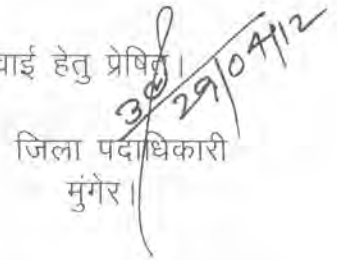 वाई हेतु प्रेषित।
29/04/12
जिला पदाधिकारी
मुंगेर।